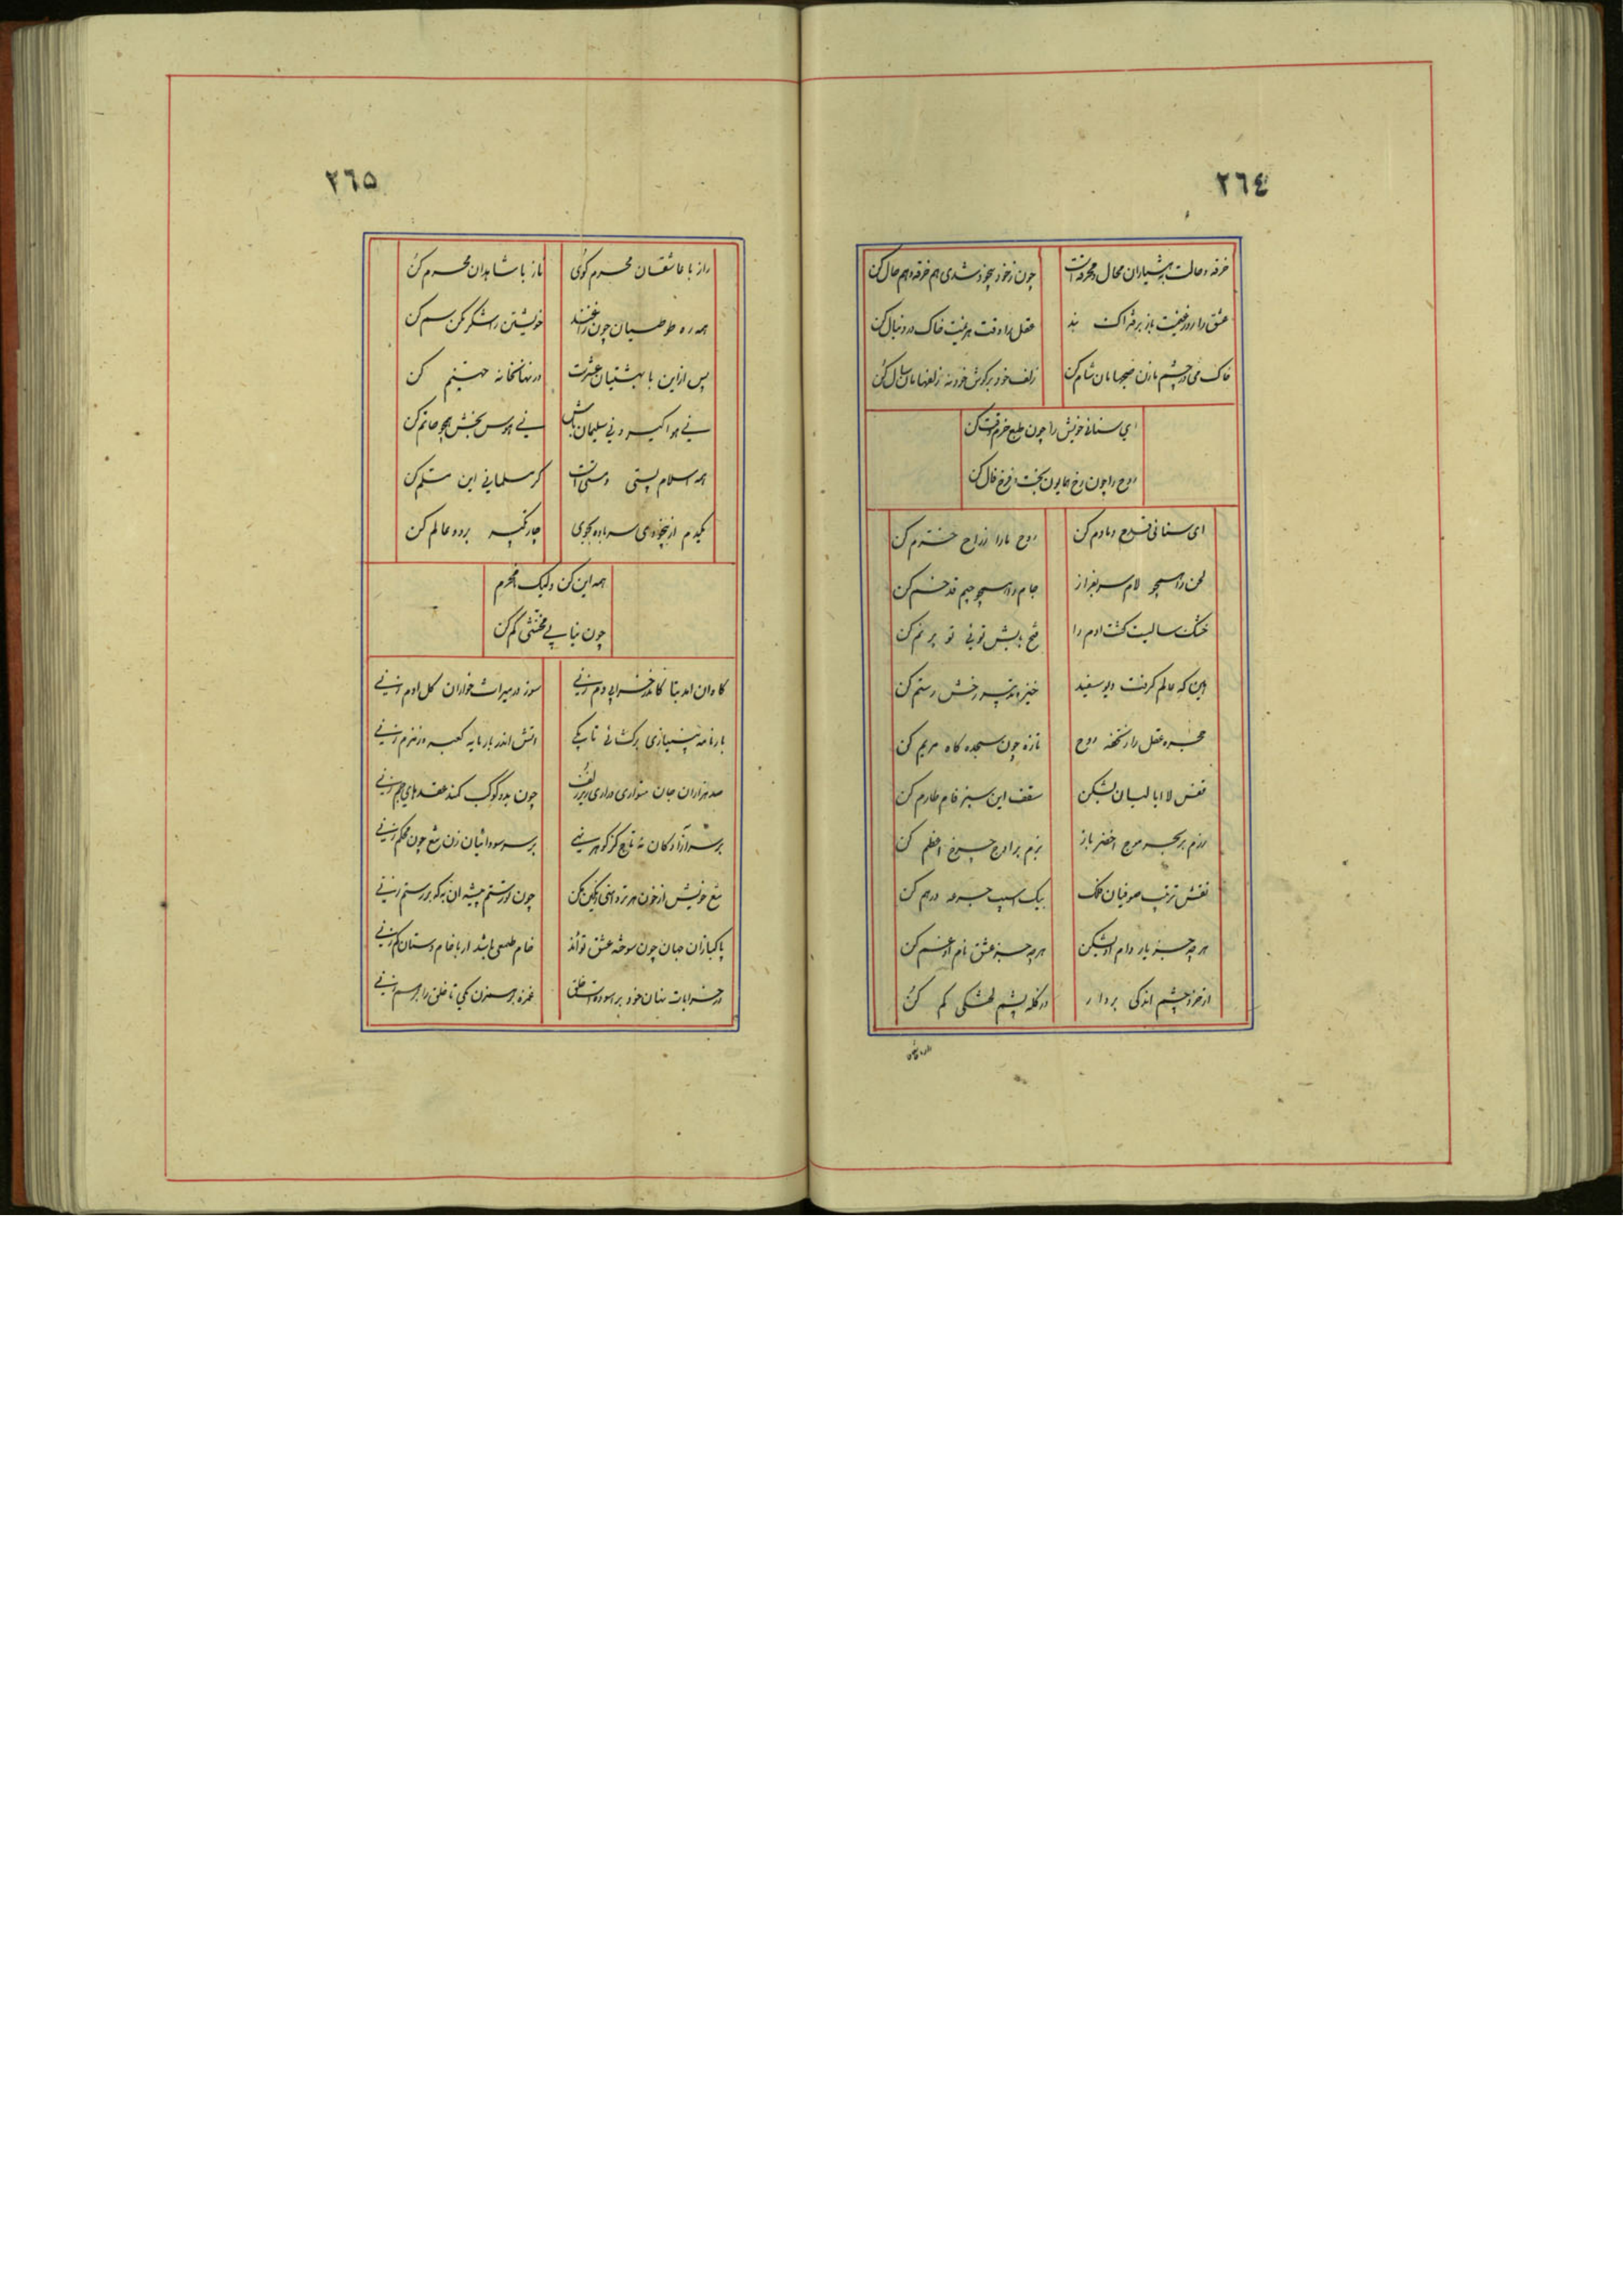 ٢٦٤
خرقه و حالت بهشیاران محال و مخرقه است چون ز خود بیخود شدی هم خرقه و هم حال کن
عشق را روز غنیمت باز بر فتراک بند عقل را وقت هزیمت خاک در دنبال کن
خاک می در چشم مازن صبحهامان شام کن زلف خود بر گوش خود نه زلفهامان
ای سنائی خویش را چون طبع خرم وقت کن
روح را چون رخ همایون بخت و فرخ فال کن
ای سنائی قدح دمادم کن روح ما را ز راح خرم کن
لحن را همچو لام سر بفراز جام را همچو جیم قد خم کن
خشک سالیست کشت آدم را فتح بابش توئی تو پر نم کن
این که عالم گرفت دیو سفید خیز و تدبیر رخش رستم کن
حجره عقل را ز تحفه روح تازه چون سجده گاه مریم کن
قفس لا ابالیان بشکن سقف این سبز فام طارم کن
رزم بر بحر موج اخضر باز بزم بر اوج چرخ اعظم کن
نقش ترتیب صوفیان فلک بیک اسیب جرعه درهم کن
هر چه جز یار دام او بشکن هر چه جز عشق نام او غم کن
از خرد چشم اندکی بردار در کله پشم لختکی کم کن
٢٦٥
راز با عاشقان محرم گوی ناز با شاهدان محرم کن
همه ره طوطیان چون زاغند خویشتن را شکر مکن سم کن
پس ازین با بهشتیان عشرت در نهانخانه جهنم کن
نی هوا گیر و نی سلیمان باش نی هوس بخش همچو حاتم کن
همه اسلام پستی و مستی است گر مسلمانی این مسلم کن
یکدم از بیخودی سه باده بجوی چار تکبیر بر دو عالم کن
همه این کن ولیک نامحرم
چون بیابی مخنثی کم کن
کاندر خرابی دم زنی سوز در میراث خواران گل آدم زنی
بارنامه بی نیازی برگشائی تا بکی آتش اندر بار مایه کعبه و زمزم زنی
صد هزاران جان متواری در آری زیر زلف چون بدو کوکب کمند حلقه های خم زنی
بر سر آزادگان نه تاج گر گوهر نهی بر سر سودائیان زن تیغ چون محکم زنی
تیغ خویش از خون هر تر دامنی رنگین مکن چون تو رستم پیشه ای آن به که بر رستم زنی
پاکبازان جهان چون سوخته عشق تواند خام طمعی باشد ار با خام دستان کم زنی
در خرابات بتان خود بر آسودست خلق غمزه بر هم زن یکی تا خلق را بر هم زنی